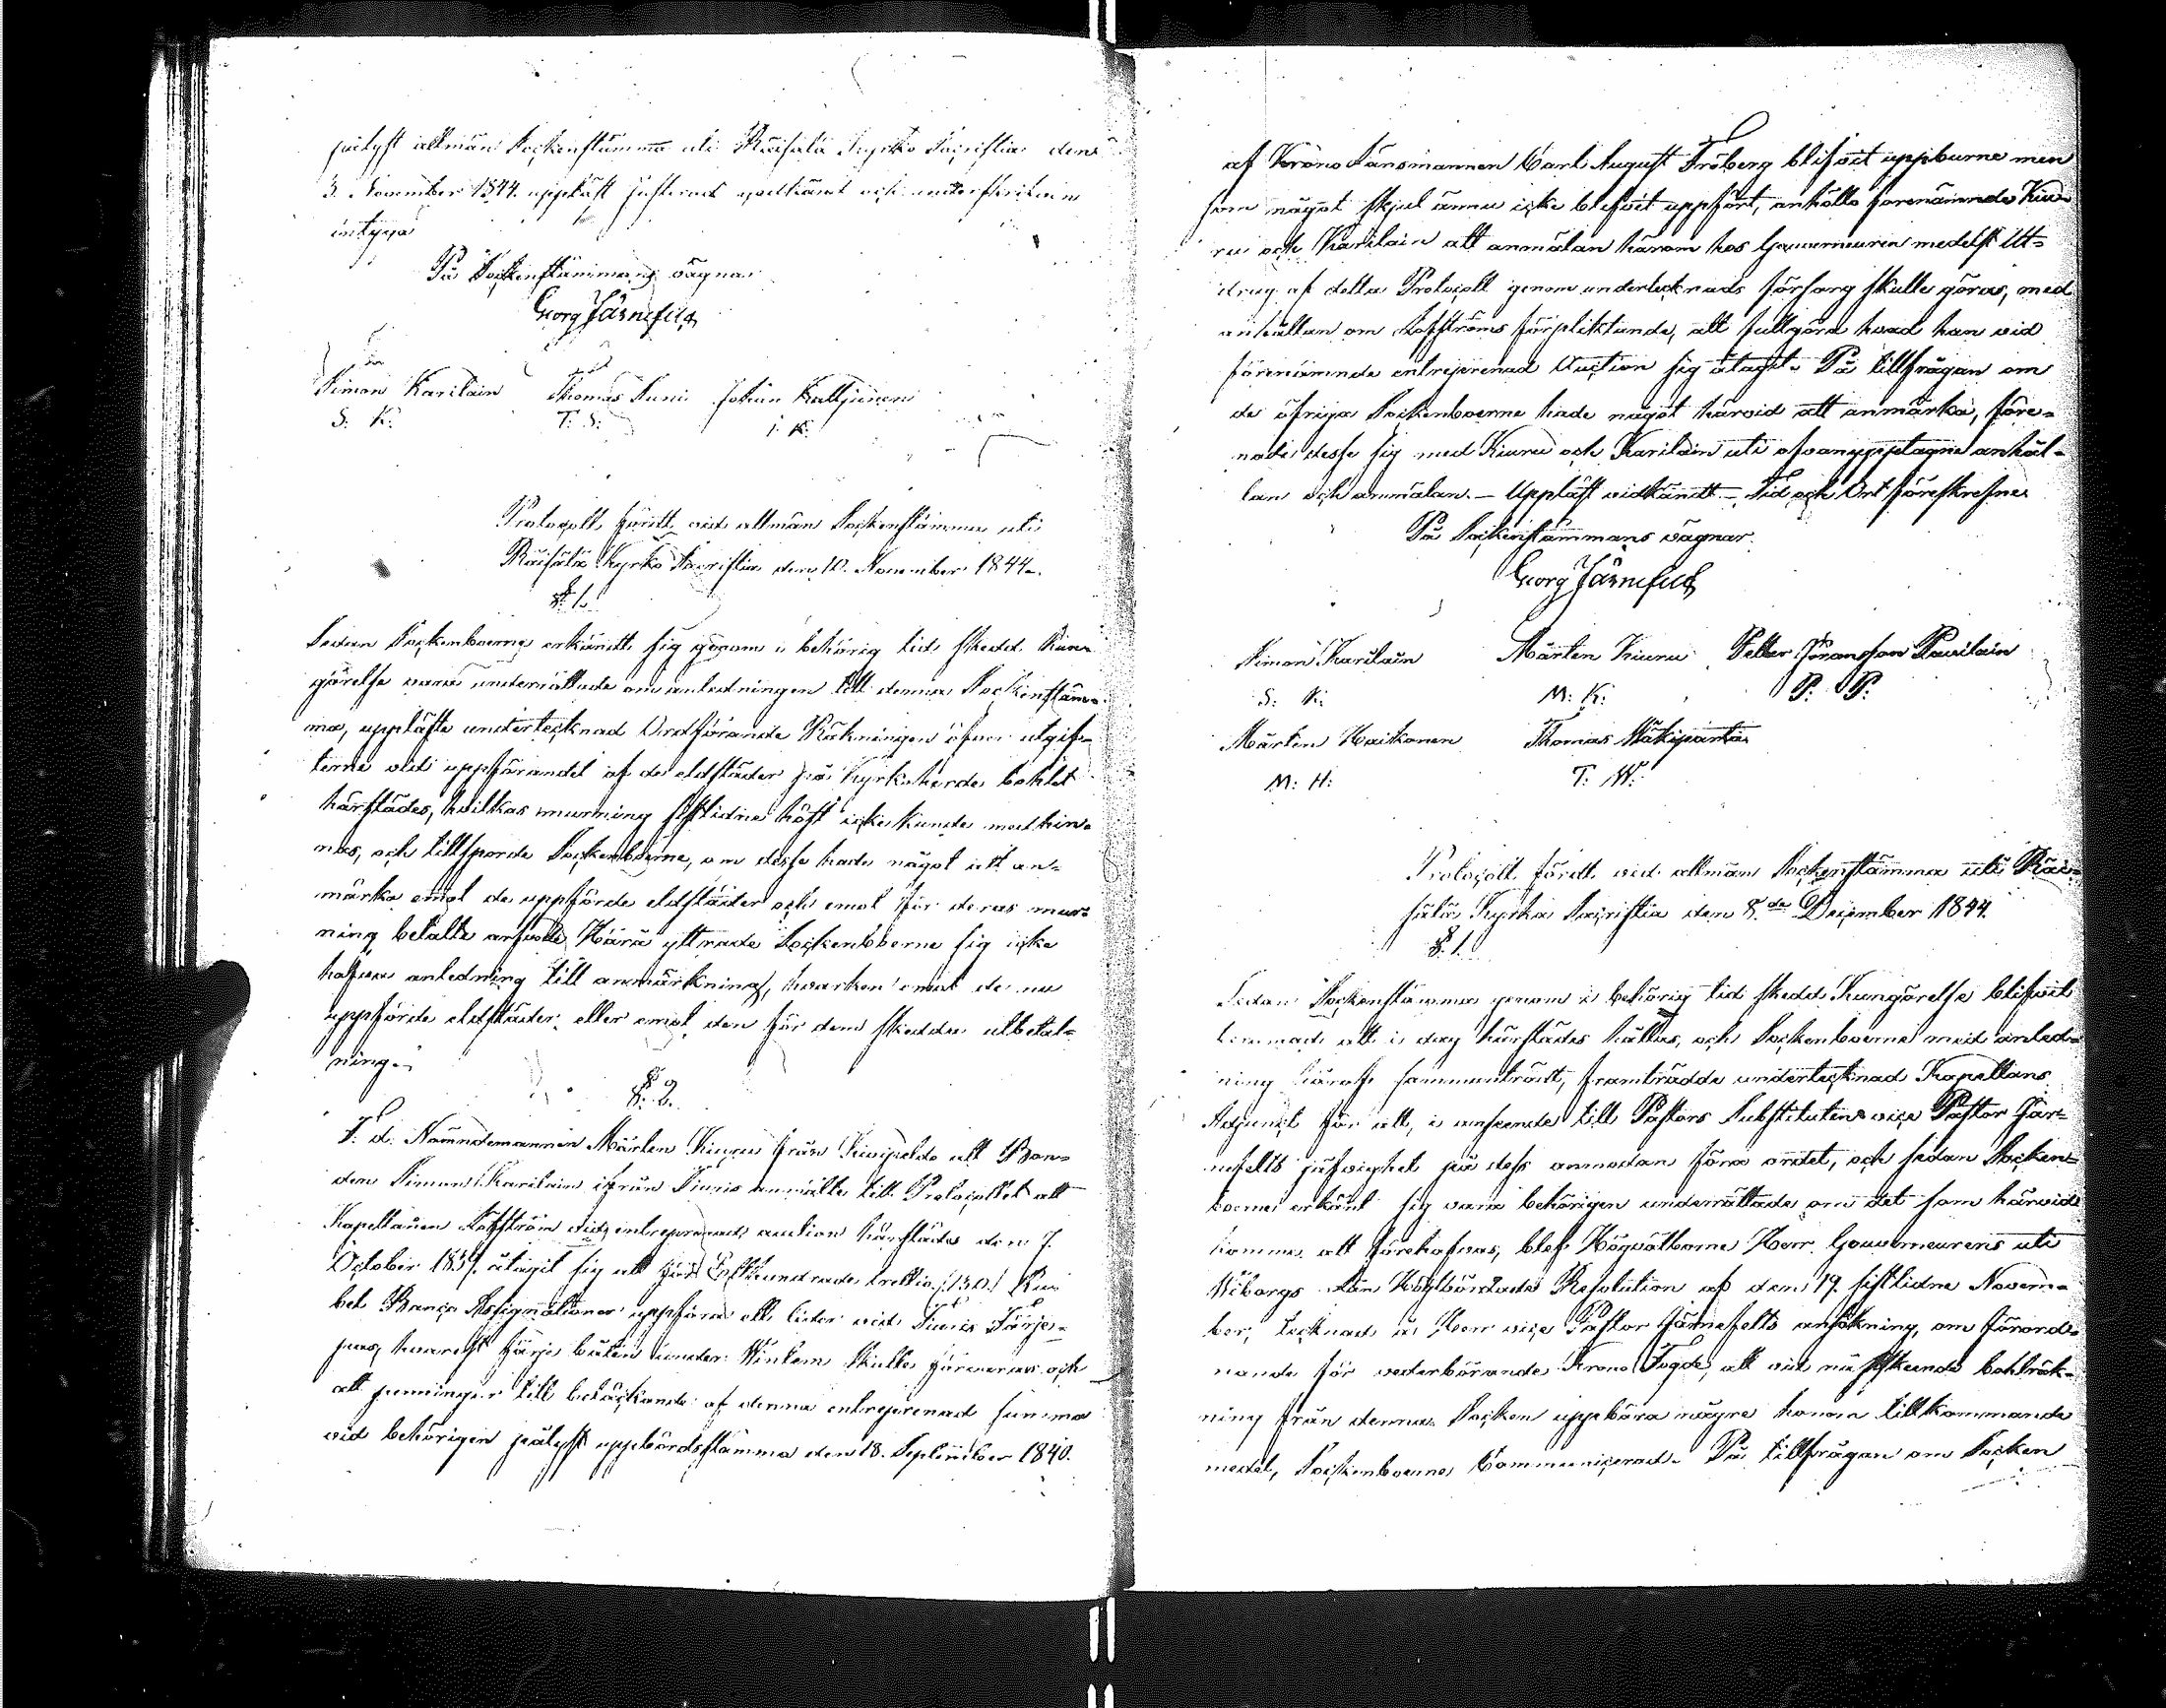 pålyst allmän Sockenstämma uti Räisälä Kyrko Sacristia den
3. November 1844. uppläst justerad godkänt och underskrifven
intyga
På Sockenstämmans vägnar
Georg Järnefelt
Simon Karilain Thomas Suni Johan Kultjunen
S: K: T: S: J: K:
Protocoll fördt vid allmän Sockenstämma uti
Räisälä Kyrko Sacristia den 10. November 1844.
§. 1.
Sedan Sockenboerne erkändt sig genom i behörig tid skedd Kun-
görelse vara underrättade om anledningen till denna Sockenstäm-
ma, uppläste undertecknad Ordförande Räkningen öfver utgif-
terne vid uppförandet af de eldstäder på Kyrkoherde bohlet
härstädes, hvilkas murning sistlidne höst icke kunde medhin-
nas, och tillsporde Sockenboerne, om desse hade något att an-
märka emot de uppförde eldstäder och emot för deras mur-
ning betalte arfvode. Härå yttrade Sockenboerne sig icke
hafva anledning till anmärkning, hvarken emot de nu
uppförde eldstäder, eller emot den för dem skedda utbetal-
ning.
§. 2.
F. d. Nämndemannen Mårten Kiuru från Kivipelda att Bon-
den Simon Karilain ifrån Tiuris anmälte till Protocollet att
Kapellanen Löfström vid entreprenad auction härstädes den 7.
October 1837. åtagit sig att för Etthundrade trettio (130.) Ru-
bel Banco Assignationer uppföra ett lider vid Tiuris Färje-
pass, hvarest färje båten under Vintern skulle förvaras och
att penningar till betäckande af denna entreprenad summa
vid behörigen pålyst uppbördsstämma den 18. September 1840.
af Krono Länsmannen Carl August Fröberg blifvit uppburne men
som något skjul ännu icke blifvit uppfört, anhöllo förenämnde Kiu-
ru och Karilain att anmälan härom hos Gouverneuren medelst Ut-
drag af detta Protocoll genom undertecknads försorg skulle göras, med
anhållan om Löfströms förpliktande, att fullgöra hvad han vid
förenämnde entreprenad Auction sig åtagit. På tillfrågan om
de öfriga Sockenboerne hade något härvid att anmärka, före-
nade desse sig med Kiuru och Karilain uti ofvanupptagne anhål-
lan och anmälan. – Uppläst vidkändt – Tid och Ort föreskrefne
På Sockenstämmans vägnar.
Georg Järnefelt
Simon Karilain Mårten Kiuru Petter Göransson Pavilain
S: K: M: K: P: P:
Mårten Haikonen Thomas Mäkipartia
M: H: T: M:
Protocoll fördt vid allmän Sockenstämma uti Räi-
sälä Kyrko Sacristia den 8.de December 1844.
§. 1.
Sedan Sockenstämma genom i behörig tid skedd Kungörelse blifvit
bestämad att i dag härstädes hållas, och Sockenboerne med anled-
ning häraf sammanträdt, framträdde undertecknad Kapellans
Adjunct för att, i anseende till Pastors Substituten vice Pastor Jär-
nefelts jäfvighet på dess anmodan föra ordet, och sedan Socken-
boerne erkänt sig vara behörigen underrättade om det som härvid
komme att förehafvas, blef Högvälborne Herr Gouverneurens uti
Wiborgs Län Höglöflade Resolution af den 19. sistlidne Novem-
ber, tecknad å Herr vice Pastor Järnefelts ansökning, om förord-
nande för vederbörande Krono Fogde, att vid nu påstående bohlräk-
ning från denna Socken uppbära någre honom tillkommande
medel, Sockenboerne Communicerad. På tillfrågan om Socken